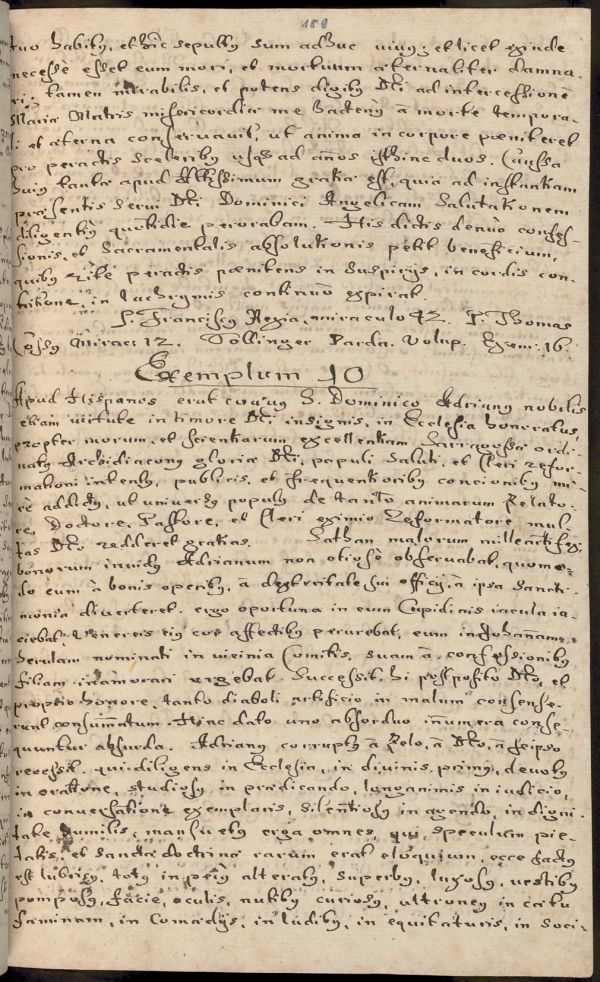 189
tuo habitu, et hic sepultus sum adhuc vivus: et licet exinde
necessè esset eum mori, et mortuum æternaliter damna-
ri; tamen mirabilis, et potens digitus Dei ad intercessionē
Mariæ Matris misericordiæ me hactenus à morte tempora-
li et æterna conservavit, ut anima in corpore pœniteret
pro peractis sceleribus usque ad años isthinc duos. Caussa
huius tantæ apud Altissimum gratiæ est, quia ad instantiam
præsentis servi Dei Dominici Angelicam Salutationem
diligentius quotidie perorabam. His dictis denuò confes-
sionis, et Sacramentalis absolutionis petit beneficium,
quibus ritè peractis pœnitens in suspirijs, in cordis con-
tritione, in lachrymis continuò expirat.
P. Franciscus Regia, miraculo 42. P. Thomas
Mirac: 12. Tollinger Parda. Volup. Exem: 16.
Exemplum 10
Apud Hispanos erat S. Dominico Adrianus nobilis
etiam virtute in timore Dei insignis, in Ecclesia honoratus,
propter morum, et scientiarum excellentiam Sarragossæ ordi-
natus Archidiaconus gloriæ Dei, populi saluti, et Cleri refor-
mationi intentus, publicis, et frequentioribus concionibus mi-
rè addictus, ut universus populus de tanto animarum Zelato-
re, Doctore, Pastore, et Cleri eximio Reformatore mul-
tas Deo redderet gratias. Sathan malorum milleartifex,
bonorum invidus Adrianum non otiosè observabat, quomo-
do eum à bonis operibus, à dexteritate sui officij, à ipsa sancti-
monia diverteret. ergo oportuna in eum Cupidinis iacula ia-
ciebat, Venereis eius cor affectibus perurebat, eum in Johannam
herulam nominati in vicinia Comitis, suam à confessionibus
filiam inamorari urgebat. Successit. hi postposito Deo, et
proprio honore, tanto diaboli artificio in malum consense-
runt consummatum. Hinc dato uno absurdo iñumera conse-
quuntur absurda. Adrianus corruptus à Zelo, à Deo, à seipso
recessit. qui diligens in Ecclesia, in divinis primus, devotus
in oratione, studiosus in prædicando, longanimis in iudicio,
in conversatione exemplaris, silentiosus in agendo, in digni-
tate humilis, mansuetus erga omnes, qui speculum pie-
tatis, et sanctæ doctrinæ rarum erat eloquium, ecce factus
est lubricus, totus in peius alteratus, superbus, luxosus, vestibus
pomposus, facie, oculis, nutibus curiosus, ultroneus in cætu
fæminarum, in Comædijs, in ludibus, in equitaturis, in soci-